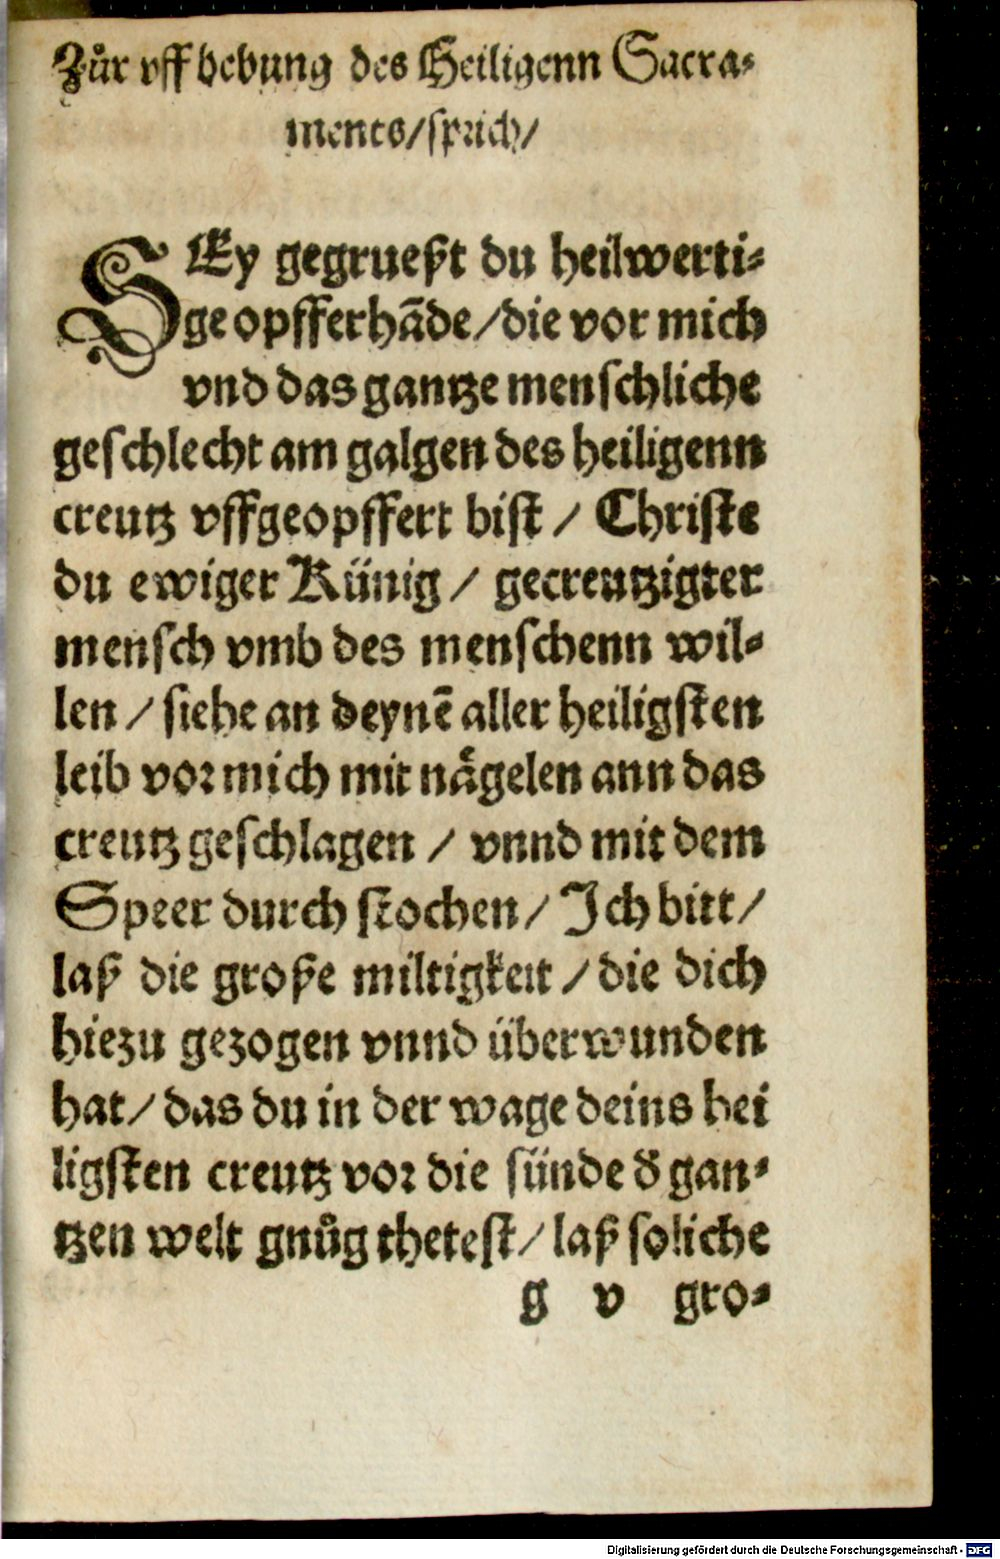 Zůr vff hebung des Heiligenn Sacra⸗
ments/sprich/
SEy gegrueßt du heilwerti⸗
ge opfferhãde/die vor mich
vnd das gantze menschliche
geschlecht am galgen des heiligenn
creutz vffgeopffert bist / Christe
du ewiger Künig / gecreutzigter
mensch vmb des menschenn wil⸗
len / siehe an deynẽ aller heiligsten
leib vor mich mit naͤgelen ann das
creutz geschlagen / vnnd mit dem
Speer durch stochen/ Ich bitt/
laß die große miltigkeit / die dich
hiezu gezogen vnnd überwunden
hat/ das du in der wage deins hei
ligsten creutz vor die sünde d̕ gan⸗
tzen welt gnůg thetest/ laß soliche
g v gro⸗
Digitalisierung gefördert durch die Deutsche Forschungsgemeinschaft - DFG